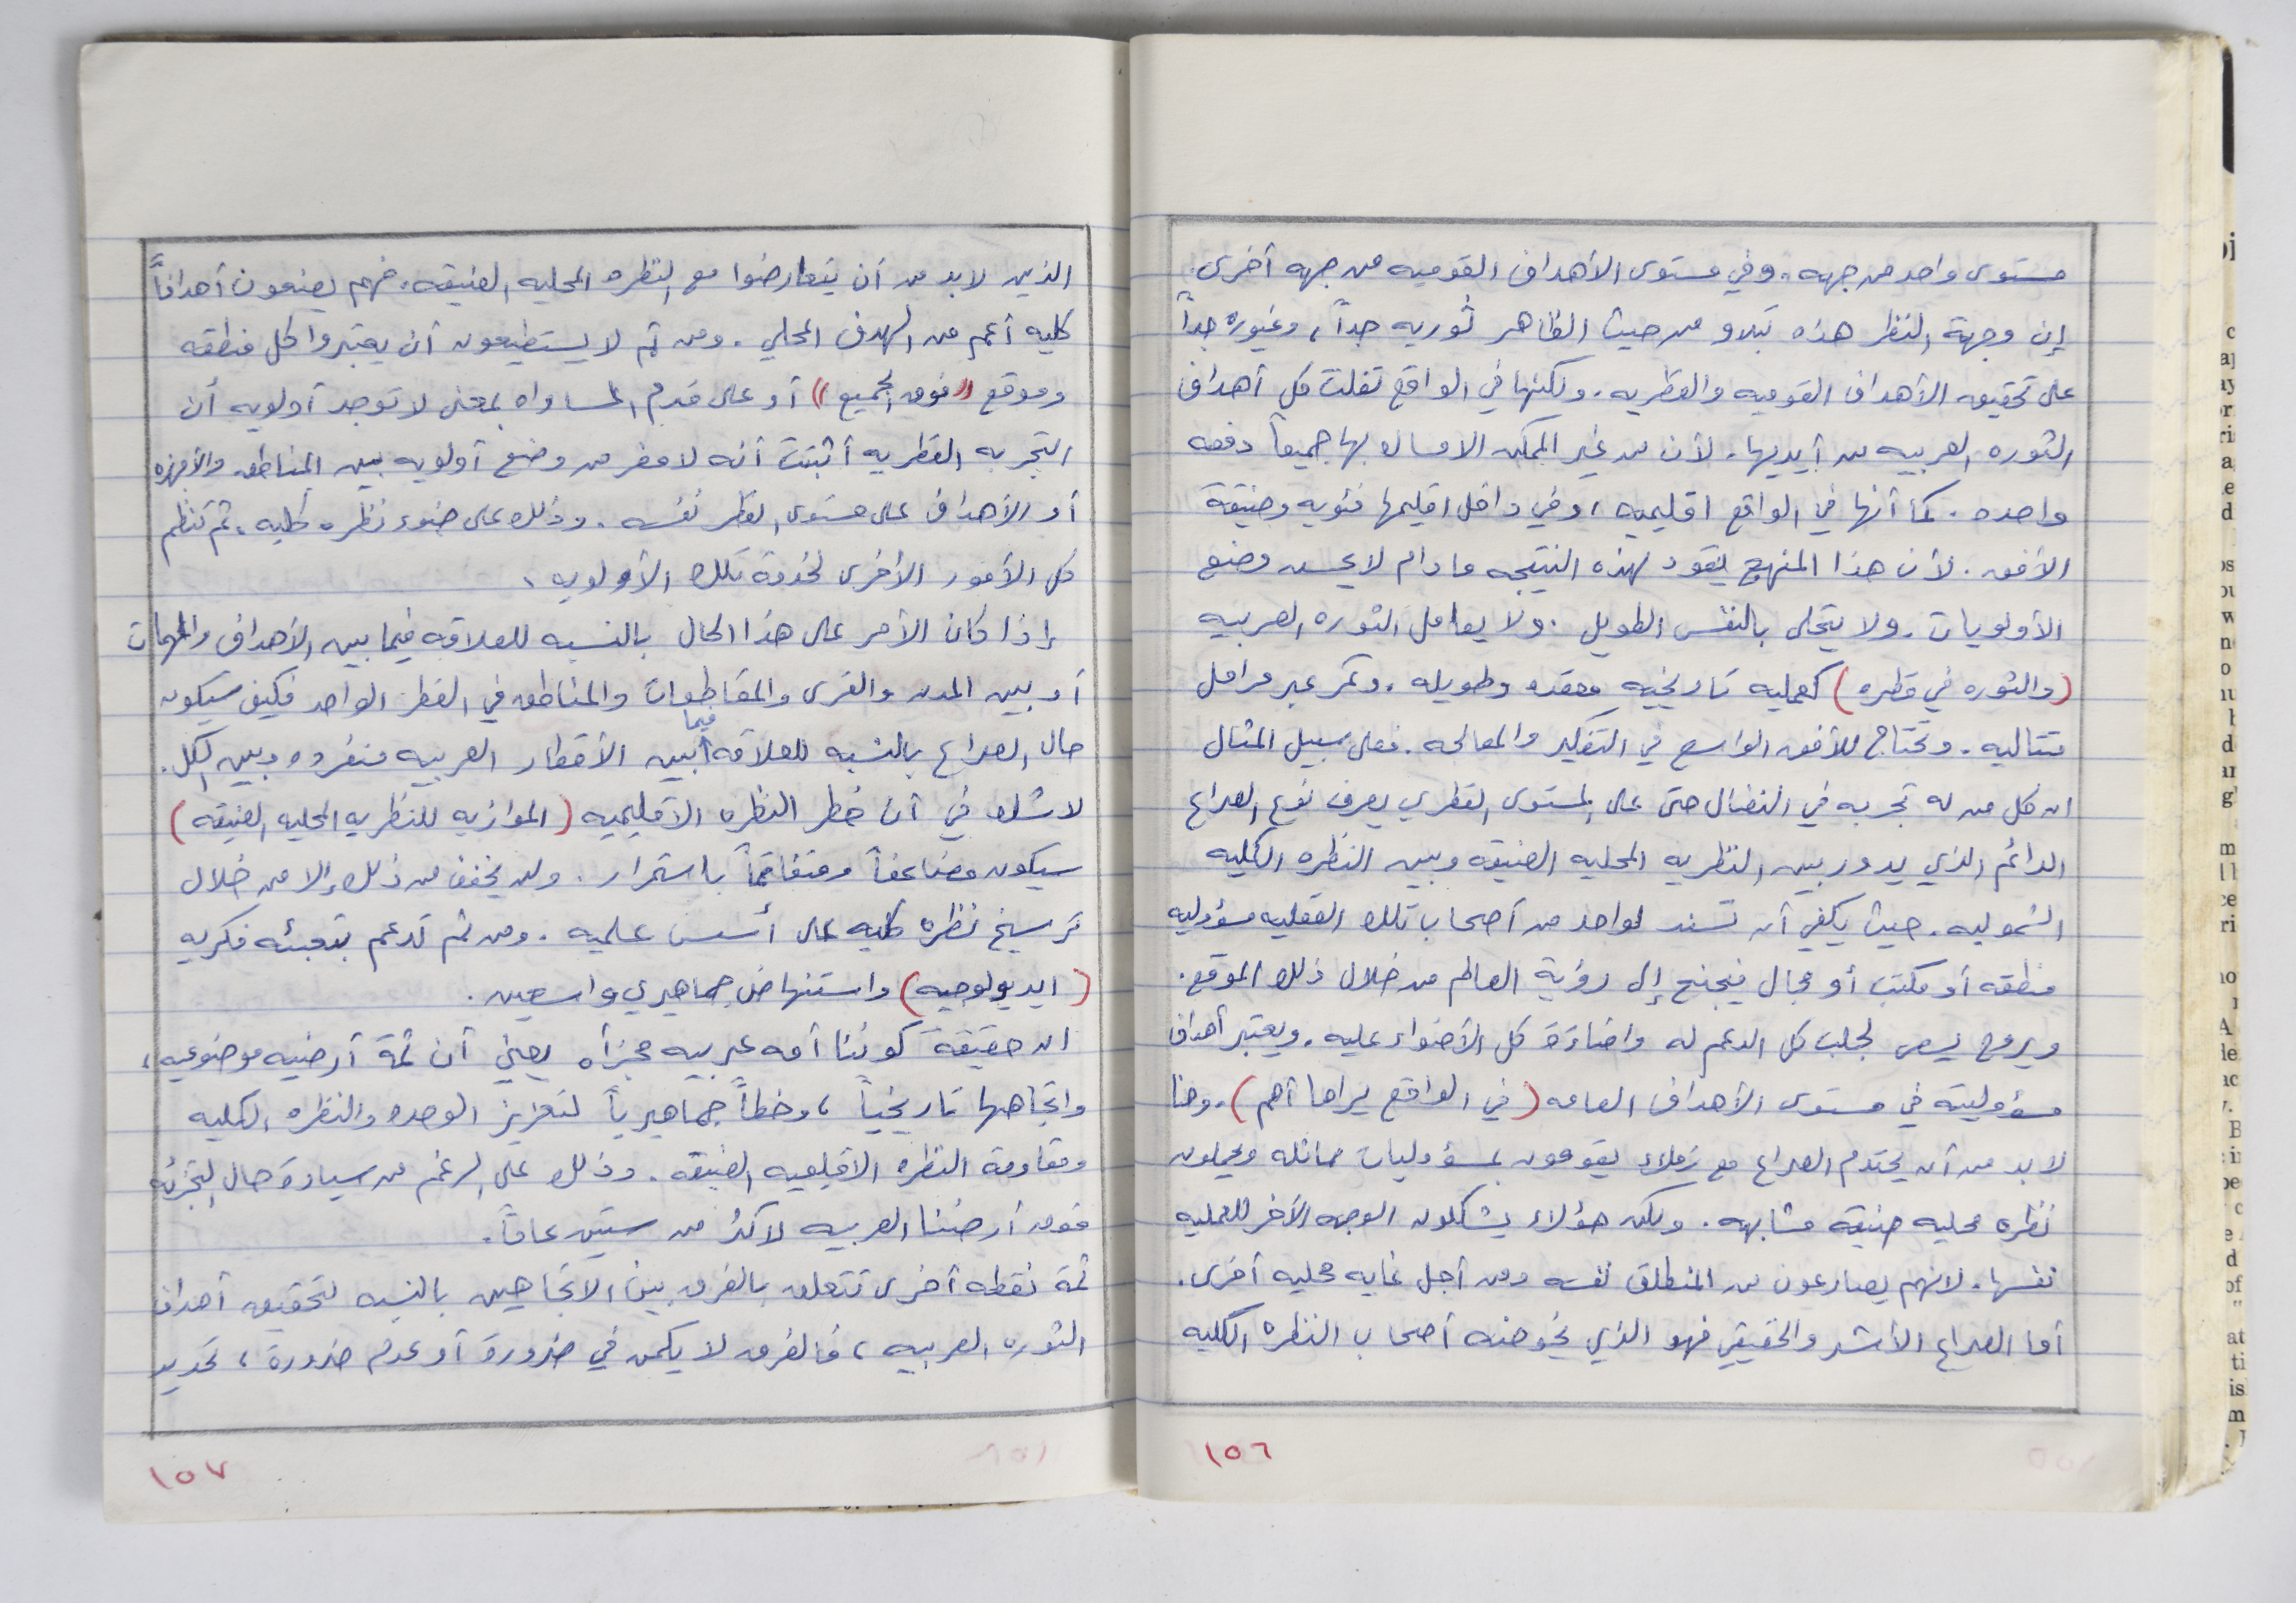 مستوى واحد من جهه. وفي مستوى الأهداف القوميه من جهه أخرى.
إن وجهة النظر هذه تبدو من حيث الظاهر ثوريه جداً، وغيوره جداً
على تحقيق الأهداف القوميه والقطريه. ولكنها في الواقع تفلت كل أهداف
الثوره العربيه من أيديها. لأن من غير الممكن الامساك بها جميعاً دفعه
واحده. كما أنها في الواقع اقليميه، وفي داخل اقليمها فئويه وضيقة
الأفق. لأن هذا المنهج يقود لهذه النتيجه مادام لا يحسن وضع
الأولويات. ولا يتحلى بالنفس الطويل. ولا يعامل الثوره العربيه
(والثوره في قطره) كعمليه تاريخيه معقده وطويله. وتمر عبر مراحل
متتاليه. وتحتاج للأفق الواسع في التفكير والمعالجه. فعلى سبيل المثال
ان كل من له تجربه في النضال حتى على المستوى القطري يعرف نوع الصراع
الدائم الذي يدور بين النظريه المحليه الضيقه وبين النظره الكليه
الشموليه. حيث يكفي أن تسند لواحد من أصحاب تلك العقليه مسؤوليه
منطقه أو مكتب أو مجال فيجنح إلى رؤية العالم من خلال ذلك الموقع.
ويروح يسعى لجلب كل الدعم له واضاءة كل الأضواء عليه. ويعتبر أهداف
مسؤوليته في مستوى الأهداف العامه (في الواقع يراها أهم). وهنا
لا بد من أن يحتدم الصراع مع زملاء يقومون بمسؤوليات مماثله ويحملون
نظره محليه ضيقه مشابهه. ولكن هؤلاء يشكلون الوجه الآخر للعمليه
نفسها. لانهم يصارعون من المنطلق نفسه ومن أجل غايه محليه أخرى.
أما الصراع الأشد والحقيقي فهو الذي يخوضه أصحاب النظره الكليه
١٥٦
الذين لابد من أن يتعارضوا مع النظره المحليه الضيقه. فهم يضعون أهدافاً
كليه أعم من الهدف المحلي. ومن ثم لا يستطيعون أن يعتبروا كل منطقه
وموقع «فوق الجميع» أو على قدم المساواه بمعنى لا توجد أولويه أن
التجربه القطريه أثبتت أنه لا مفر من وضع أولويه بين المناطق والأجهزه
أو الأهداف على مستوى القطر نفسه. وذلك على ضوء نظره كليه. ثم تنظم
كل الأمور الأخرى لخدمة تلك الأولويه.
إذا كان الأمر على هذا الحال بالنسبه للعلاقه فيما بين الأهداف والمهمات
أو بين المدن والقرى والمقاطعات والمناطق في القطر الواحد فكيف سيكون
حال الصراع بالنسبه للعلاقه فيما بين الأقطار العربيه منفرده وبين الكل.
لا شك في أن خطر النظره الاقليميه (الموازيه للنظريه المحليه الضيقه)
سيكون مضاعفاً ومتفاقماً باستمرار. ولن يخفف من ذلك إلا من خلال
ترسيخ نظره كليه على أسس علميه. ومن ثم تدعم بتعبئه فكريه
(ايديولوجيه) واستنهاض جماهيري واسعين.
ان حقيقة كوننا أمه عربيه مجزأه يعني أن ثمة أرضيه موضوعيه،
واتجاهها تاريخياً، وخطاً جماهيرياً لتعزيز الوحده والنظره الكليه
ومقاومة النظره الاقليميه الضيقه. وذلك على الرغم من سيادة حال التجزئه
فوق أرضنا العربيه لأكثر من ستين عاماً.
ثمة نقطه أخرى تتعلق بالفرق بين الاتجاهين بالنسبه لتحقيق أهداف
الثوره العربيه، فالفرق لا يكمن في ضرورة أو عدم ضرورة، تحديد
١٥٧